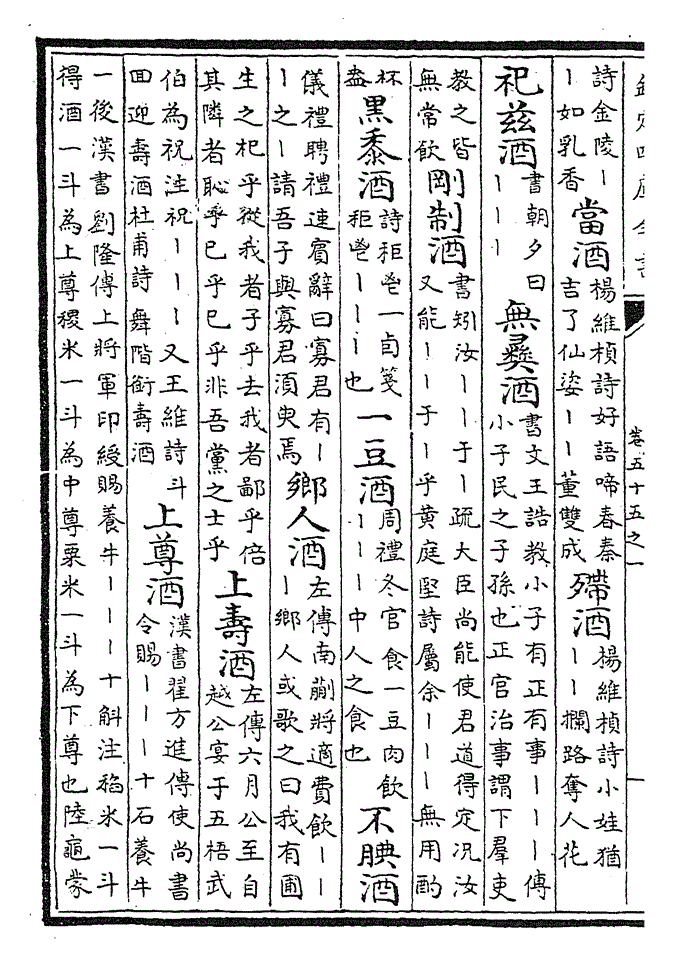 欽定四庫全書 卷五十五之一
詩金陵丨丨如乳香 當酒 楊維楨詩好語啼春秦吉了仙姿丨丨董雙成 殢酒 楊維楨詩小娃猶丨丨攔路奪人花
祀兹酒 書朝夕曰丨丨丨 無彝酒 書文王誥教小子有正有事丨丨丨傳小子民之子孫也正官治事謂下羣吏
教之皆無常飲 剛制酒 書矧汝丨丨于丨疏大臣尚能使君道得定况汝又能丨丨于丨乎黄庭堅詩屬余丨丨丨無用酌
杯盎 黑黍酒 詩秬鬯一卣箋秬鬯丨丨丨也 一豆酒 周禮冬官食一豆肉飲丨丨丨中人之食也 不腆酒
儀禮聘禮連賓辭曰寡君有丨丨之丨請吾子與寡君須臾焉 鄉人酒 左傳南蒯將適費飲丨丨丨鄉人或歌之曰我有圃
生之杞乎從我者子乎去我者鄙乎倍其隣者恥乎已乎已乎非吾黨之士乎 上壽酒 左傳六月公至自越公宴于五梧武
伯為祝注祝丨丨丨又王維詩斗回迎壽酒杜甫詩舞階銜壽酒 上尊酒 漢書翟方進傳使尚書令賜丨丨丨十石養牛
一後漢書劉隆傳上將軍印綬賜養牛丨丨丨十斛注稻米一斗得酒一斗為上尊稷米一斗為中尊粟米一斗為下尊也陸龜蒙